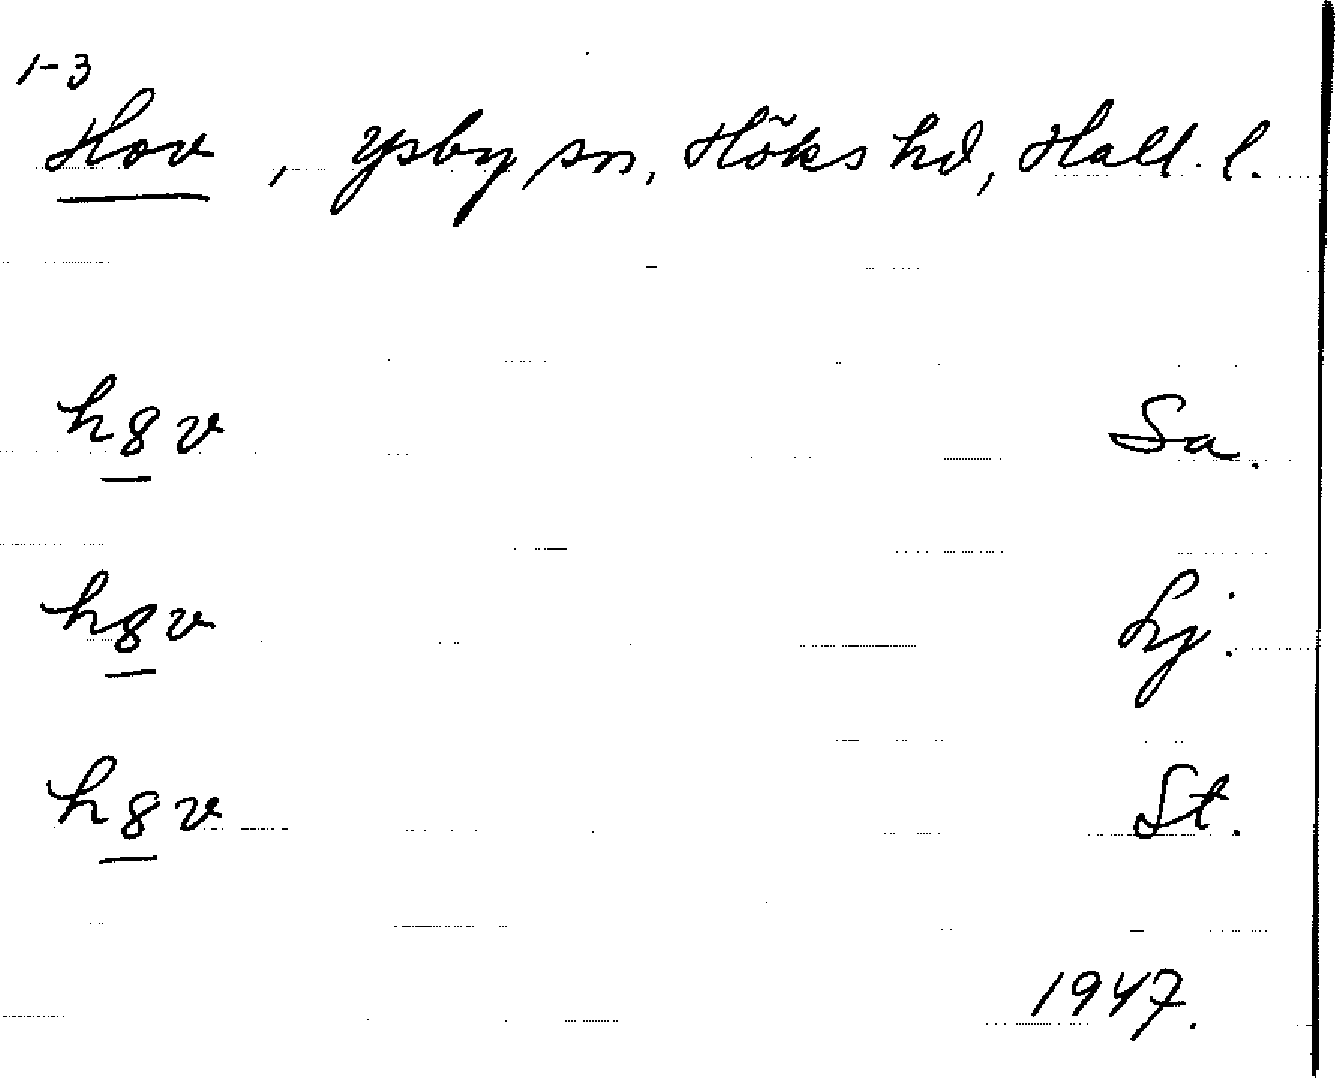 1-3
Hov, Ysby sn, Höks hd, Hall. l.
hȣv Sa.
hȣv Lj.
hȣv St.
1947.